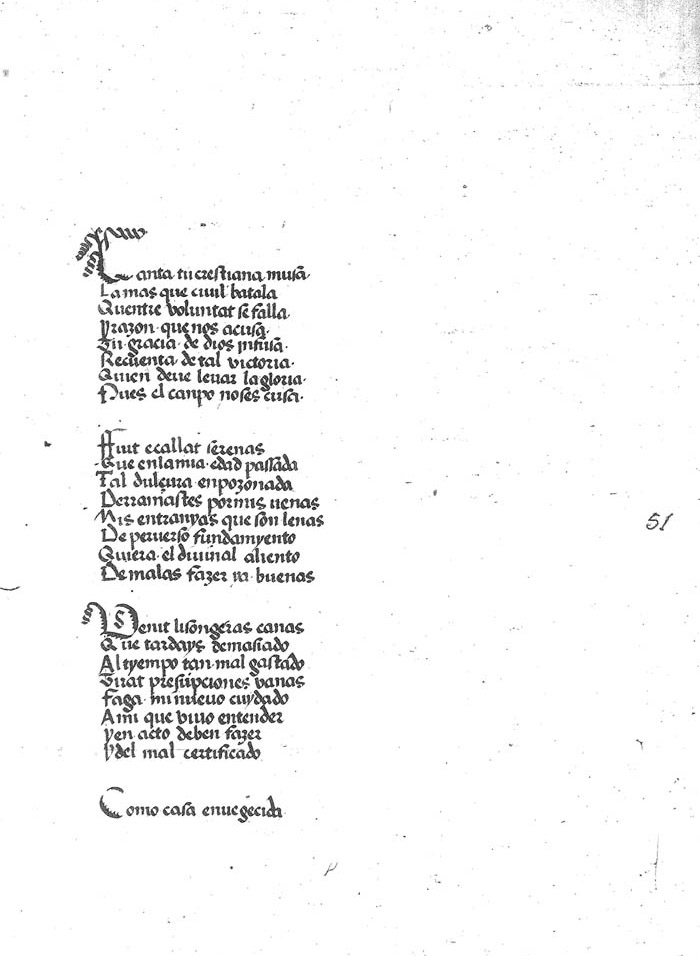 Canta tu crestiana musa
La mas que ciuil batala
Quentre voluntat se falla
y razon que nos acusa
Tu gracia de dios infusa
Recuenta de tal victoria
Quien deue leuar la gloria
Pues el canpo no ses cusa
Fuit ecallat serenas
Que enlamia edad passada
Tal dulçura enpozonada
Derramastes pormis uenas
Mis entranyas que son lenas
De peruerso fundamyento
Quiera el diuinal aliento
De malas fazer buenas
Uenit lisongeras canas
Que tardays demasiado
Al tyempo tan mal gastado
Tirat presupciones vanas
Faga mi nueuo cuydado
Ami que viuo entender
yen acto deben fazer
ydel mal certificado
Como casa enuegecida
51